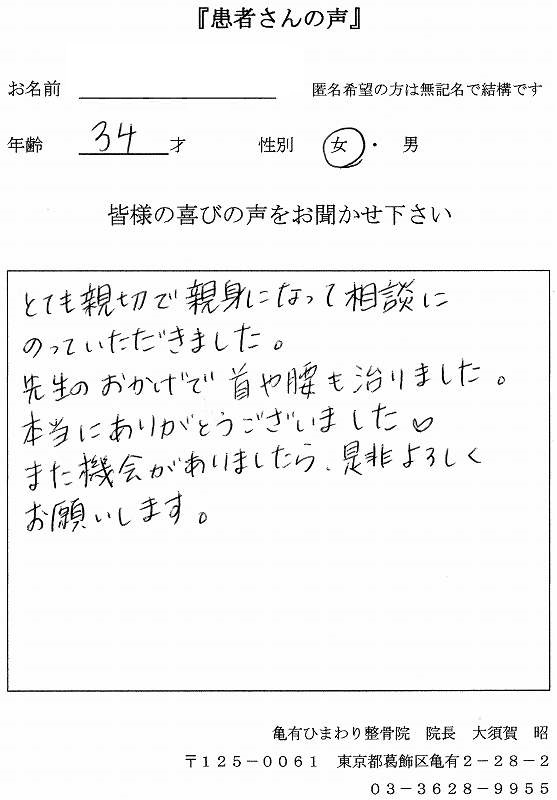 『患者さんの声』
お名前 匿名希望の方は無記名で結構です
年齢 34 才 性別 女 ・ 男
皆様の喜びの声をお聞かせ下さい
とても親切で親身になって相談に
のっていただきました。
先生のおかげで首や腰も治りました。
本当にありがとうございました♡
また機会がありましたら、是非よろしく
お願いします。
亀有ひまわり整骨院 院長 大須賀 昭
〒125-0061 東京都葛飾区亀有2-28-2
03-3628-9955